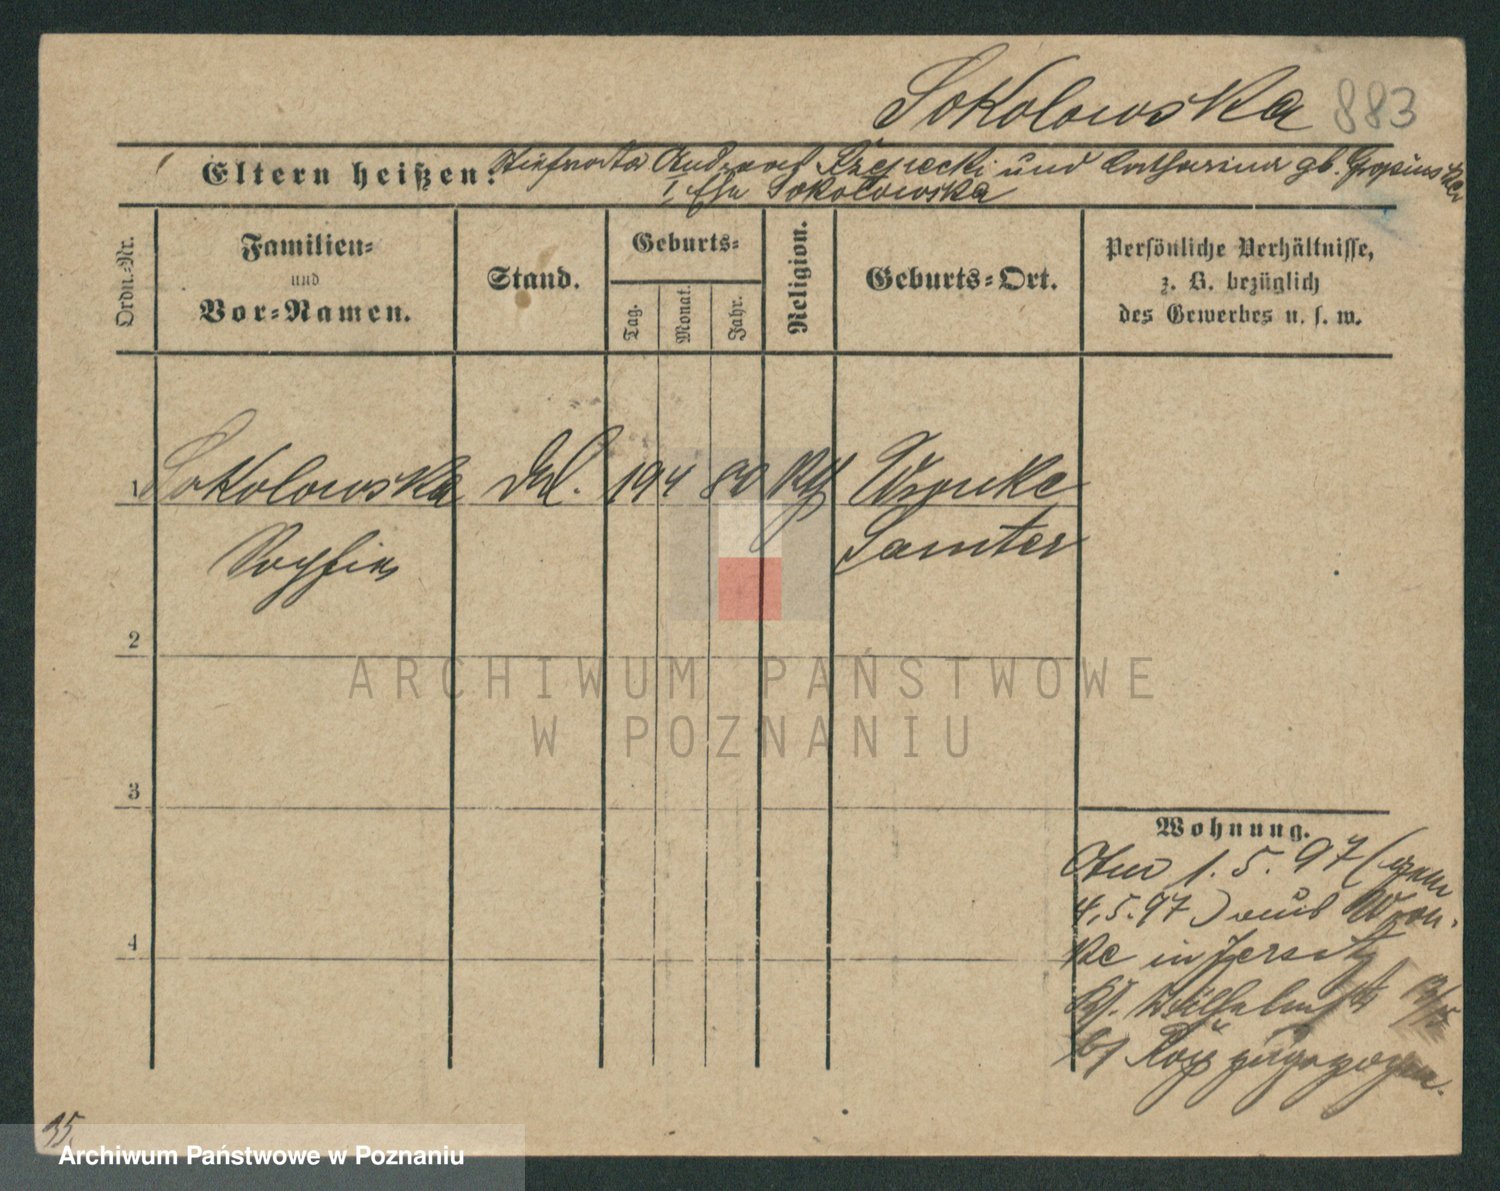 Sokolowska 883
Eltern heißen: Stiefvater Andreas Rzepecki und Catharina gb.
I. Ehe Sokolowska
Ordn.-Nr.
Familien-
und
Vor-Namen.
Stand.
Geburts-
Tag.
Monat.
Jahr.
Religion.
Geburts-Ort.
Persönliche Verhältnisse,
z. B. bezüglich
des Gewerbes u. s. w.
1 Sokolowska led. 19 4 80 kth Wronke
Sophia Samter
2
3
4
Wohnung.
Am 1. 5. 97 (gem
4.5.97) aus Wron-
ke in Jersitz
Wilhelmstr
zugezogen.
35.
ARCHIWUM PAŃSTWOWE
W POZNANIU
Archiwum Państwowe w Poznaniu